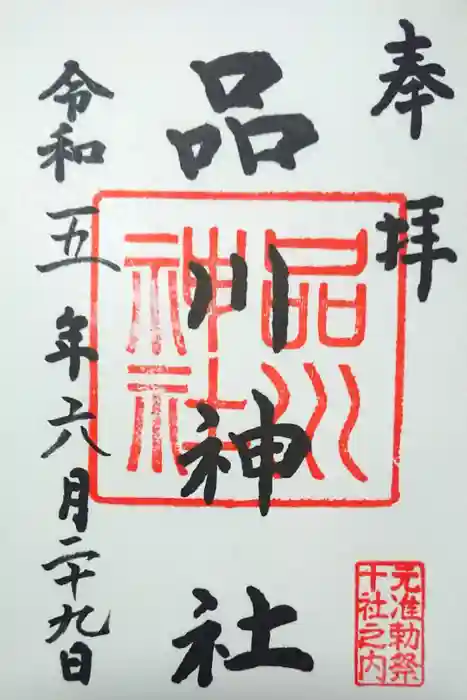 奉拝
品川神社
令和五年六月二十九日
品川
神社
元准勅祭
十社之内